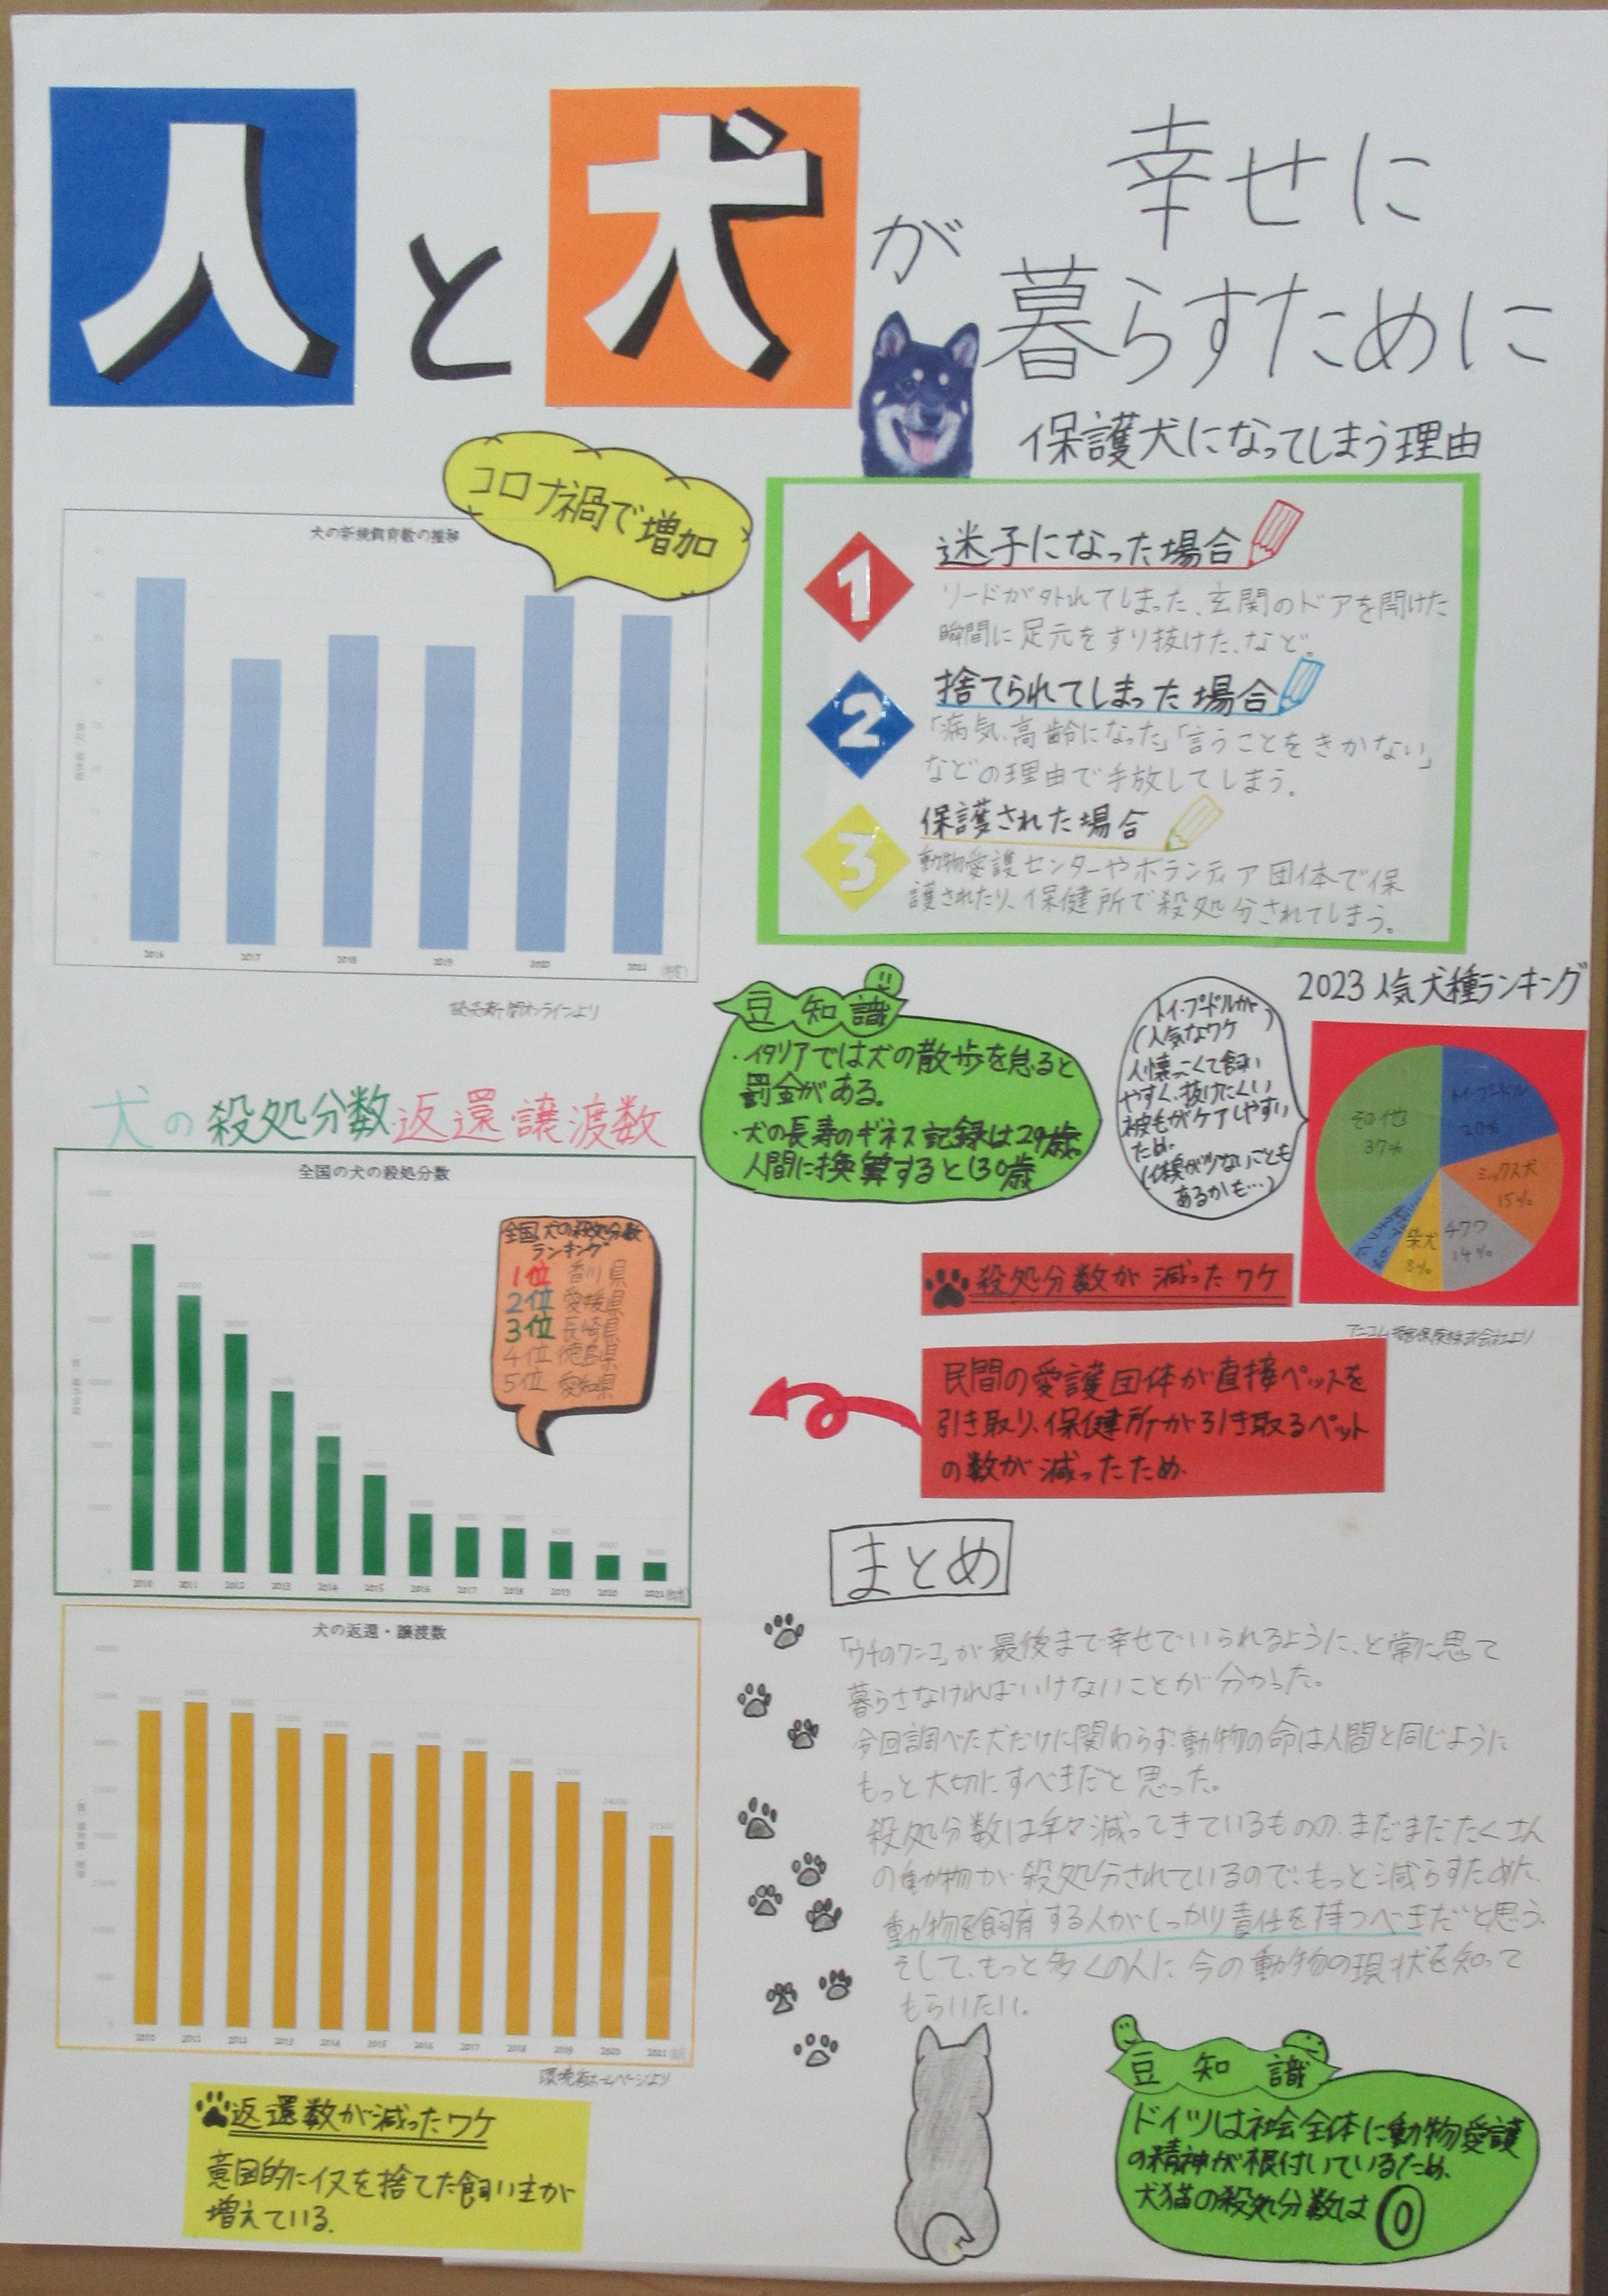 人と犬が
幸せに
暮らすために
保護犬になってしまう理由
コロナ禍で増加
犬の新規飼育数の推移
2016
2017
2018
2019
2020
2021
読売新聞オンラインより
1
迷子になった場合
リードが外れてしまった、玄関のドアを開けた
瞬間に足元をすり抜けた、など。
2
捨てられてしまった場合
「病気、高齢になった」「言うことをきかない」
などの理由で手放してしまう。
3
保護された場合
動物愛護センターやボランティア団体で保
護されたり、保健所で殺処分されてしまう。
豆知識
・イタリアでは犬の散歩を怠ると
罰金がある。
・犬の長寿のギネス記録は29歳。
人間に換算すると130歳
トイ・プードルが
人気なワケ
人懐っこくて飼い
やすく、抜けにくい
被毛がケアしやすい
ため。
(体臭が少ないことも
あるかも…)
2023 人気犬種ランキング
トイ・プードル
20%
ミックス犬
15%
チワワ
14%
柴犬
8%
その他
37%
アニコム損害保険株式会社より
犬の殺処分数返還譲渡数
全国の犬の殺処分数
全国犬の殺処分数
ランキング
1位 香川県
2位 愛媛県
3位 長崎県
4位 徳島県
5位 愛知県
2010
2011
2012
2013
2014
2015
2016
2017
2018
2019
2020
2021
殺処分数が減ったワケ
民間の愛護団体が直接ペットを
引き取り、保健所が引き取るペット
の数が減ったため。
犬の返還・譲渡数
2010
2011
2012
2013
2014
2015
2016
2017
2018
2019
2020
2021
環境省ホームページより
返還数が減ったワケ
意図的にイヌを捨てた飼い主が
増えている。
まとめ
「ウチのワンコ」が最後まで幸せでいられるように、と常に思って
暮らさなければいけないことが分かった。
今回調べた犬だけに関わらず、動物の命は人間と同じように
もっと大切にすべきだと思った。
殺処分数は年々減ってきているものの、まだまだたくさん
の動物が殺処分されているので、もっと減らすために、
動物を飼育する人がしっかり責任を持つべきだと思う。
そして、もっと多くの人に今の動物の現状を知って
もらいたい。
豆知識
ドイツは社会全体に動物愛護
の精神が根付いているため、
犬猫の殺処分数は0